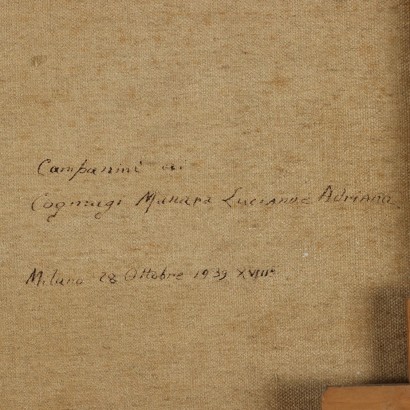 Campanini ai
Cogniugi Manara Luciano e Adriana
Milano 28 Ottobre 1939 XVIII°